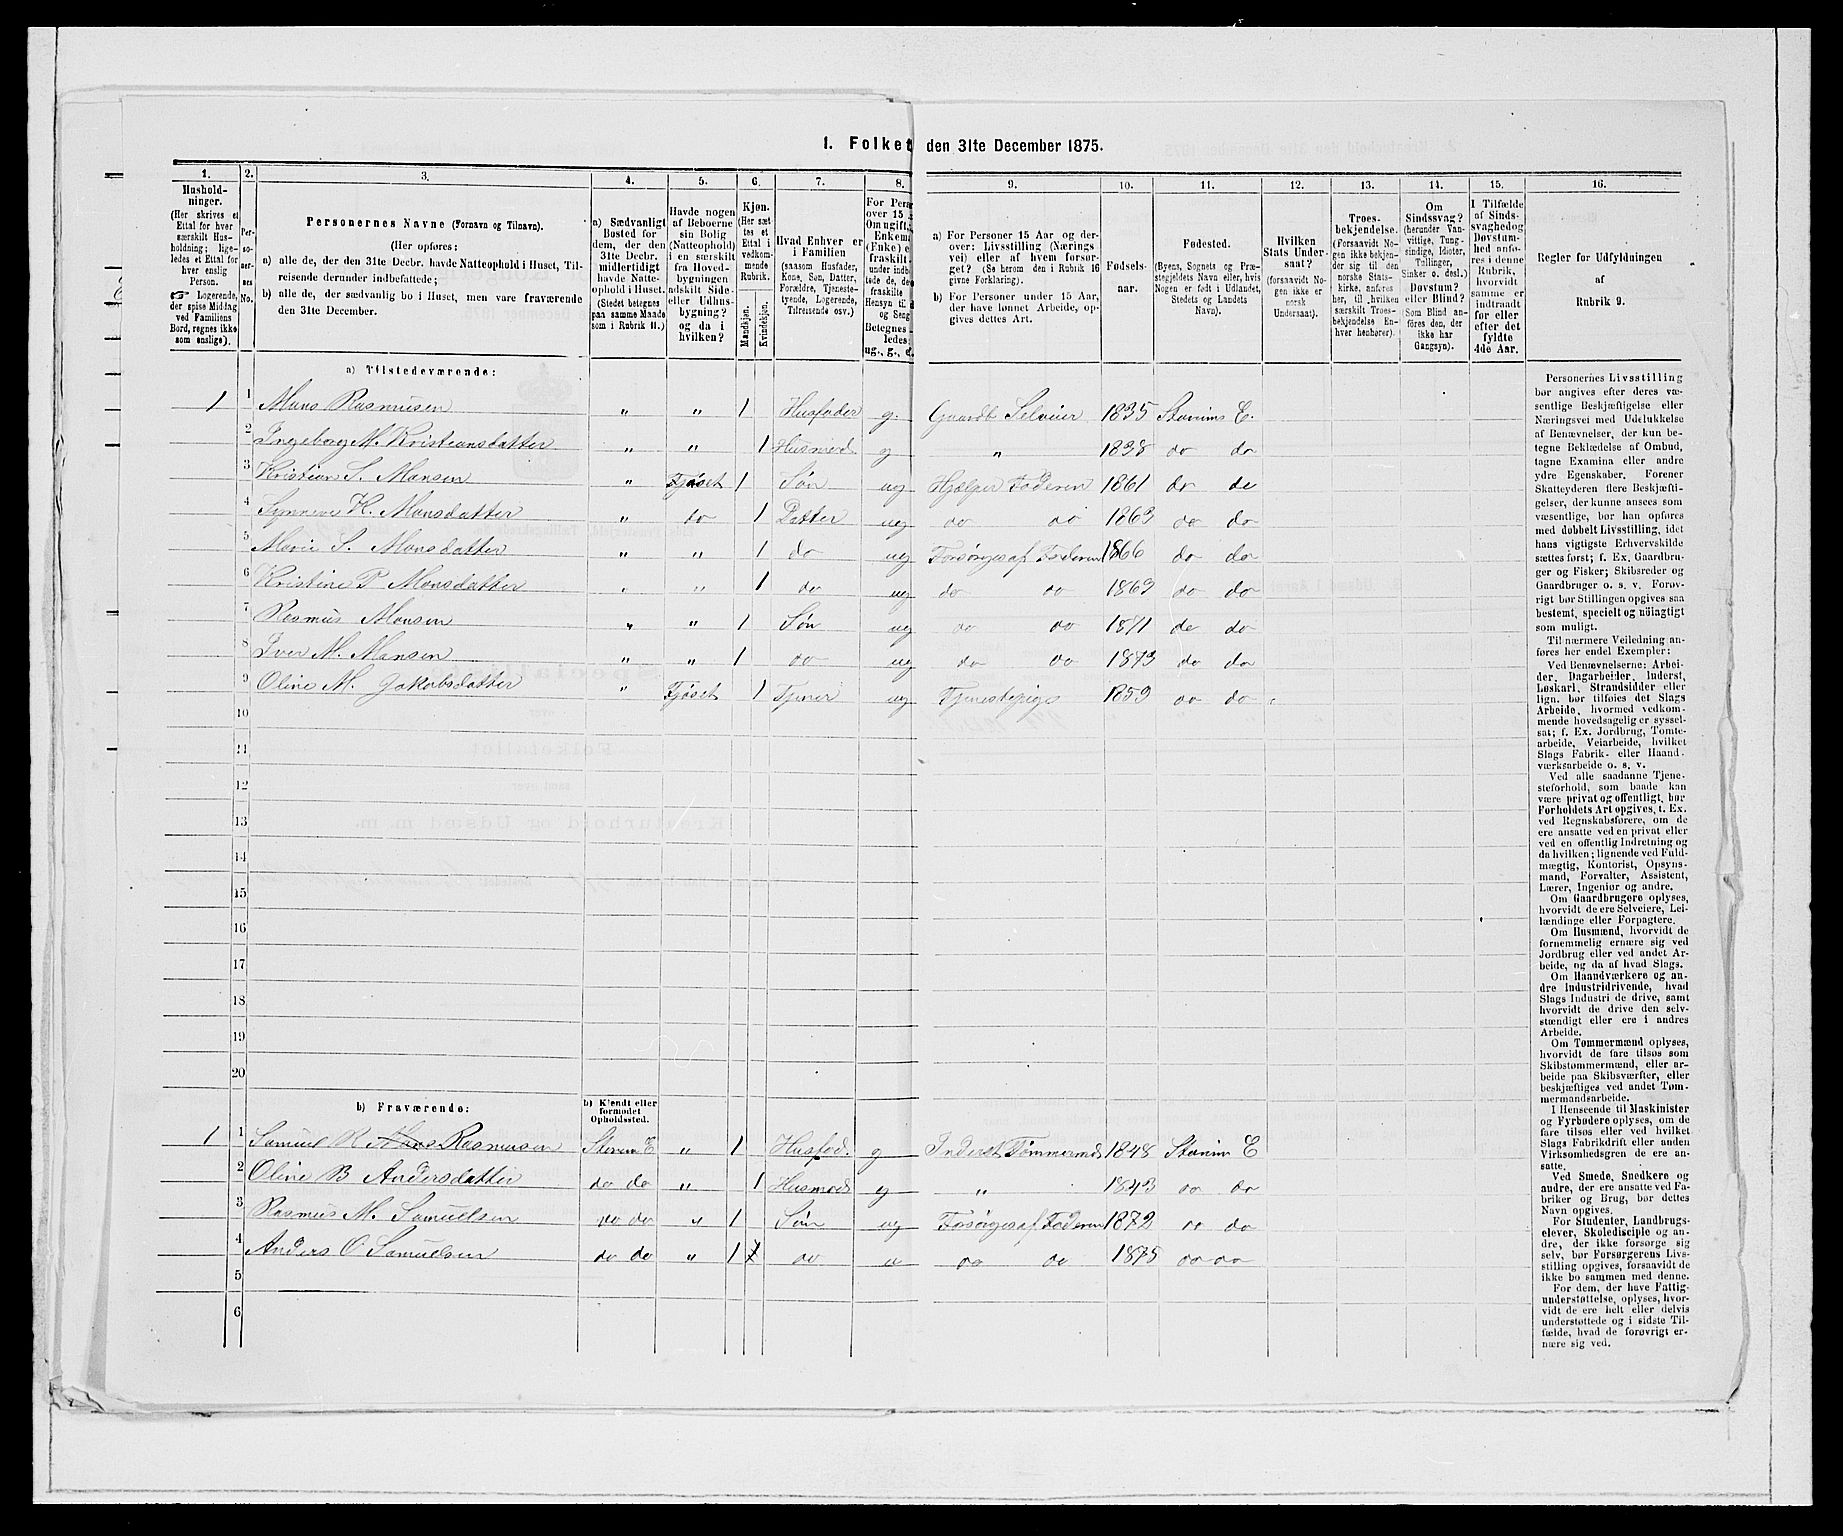 1. Folket den 31te December 1875.
1. 2. 3. 4. 5. 6. 7. 8. 9. 10. 11. 12. 13. 14. 15. 16.
Hushold-
ninger.
(Her skrives et
Ettal for hver
særskilt Hus-
holdning; lige-
ledes et Ettal for
hver enslig
Person.
☞ Logerende,
der spise Middag
ved Familiens
Bord, regnes ikke
som enslige).
Per-
so-
ner-
nes
No.
Personernes Navne (Fornavn og Tilnavn).
(Her opføres:
a) alle de, der den 31te Decbr. havde Natteophold i Huset, Til-
reisende derunder indbefattede;
b) alle de, der sædvanlig bo i Huset, men vare fraværende
den 31te December.
a) Sædvanligt
Bosted for
dem, der den
31te Decbr.
midlertidigt
havde Natte-
ophold i Huset.
(Stedet betegnes
paa samme Maade
som i Rubrik 11.)
Havde nogen
af Beboerne
sin Bolig
(Natteophold)
i en særskilt
fra Hoved-
bygningen
adskilt Side-
eller Udhus-
bygning?
og da i
hvilken?
Kjøn.
(Her sæt-
tes et
Ettal i
vedkom-
mende
Rubrik.
Mandkjøn.
Kvindekjøn.
Hvad Enhver er
i Familien
(saasom Husfader,
Kone, Søn, Datter,
Forældre, Tjeneste-
tyende, Logerende,
Tilreisende osv.)
For Pers
over 15
Om ugift,
Enkem
(Enke) e
fraskilt
under indb
tede de, de
fraskilte
Hensyn til
og Seng
Betegnes
ledes:
ug., g., e.
a) For Personer 15 Aar og der-
over: Livsstilling (Nærings
vei) eller af hvem forsør-
get? (Se herom den i Rubrik 16
givne Forklaring).
b) For Personer under 15 Aar,
der have lønnet Arbeide, op-
gives dettes Art.
Fødsels-
aar.
Fødested.
(Byens, Sognets og Præ-
stegjeldets Navn eller, hvis
Nogen er født i Udlandet,
Stedets og Landets
Navn).
Hvilken
Stats Under-
saat?
(forsaavidt No-
gen ikke er
norsk
Undersaat).
Troes-
bekjendelse.
(Forsaavidt No-
gen ikke bekjen-
der sig til den
norske Stats-
kirke, anføres
her, til hvilken
særskilt Troes-
bekjendelse En-
hver henhører).
Om
Sindssvag?
(herunder Van-
vittige, Tung-
sindige, Idioter,
Tullinger,
Sinker o. desl.)
Døvstum?
eller Blind?
(Som Blind an-
føres den, der
ikke har
Gangsyn).
I Tilfælde
af Sinds-
svaghed og
Døvstum-
hed anfø-
res i denne
Rubrik,
hvorvidt
samme er
indtraadt
før eller
efter det
fyldte
4de Aar.
Regler for Udfyldningen
af
Rubrik 9.
a) Tilstedeværende:
1 1 Mons Rasmusen " " 1 Husfader g. Gaardb Selveier 1835 Storøns E.
2 Ingeborg M. Kristiansdatter " " 1 Husmod. g " 1838 do do
3 Kristian S. Monsen " Fjøset 1 Søn ug Hjælper Faderen 1861 do do
4 Synneve H. Monsdatter " do 1 Datter ug do do 1863 do do
5 Marie S. Monsdatter " " 1 do ug Forsørges af Faderen 1866 do do
6 Kristine P Monsdatter " " 1 do ug do do 1869 do do
7 Rasmus Monsen " " 1 Søn ug do do 1871 do do
8 Iver M. Mansen " " 1 do ug do do 1873 do do
9 Oline M. Jakobsdatter " Fjøset 1 Tjener ug Tjenestepige 1859 do do
10
11
12
13
14
15
16
17
18
19
20
b) Fraværende:
b) Kjendt eller
formodet
Opholdssted.
1 1 Samuel R Rasmusen E " 1 Husfod. g Inderst Tømmermd 1848 E
2 Oline B Andersdatter do do " 1 Husmod g " 1843 do do
3 Rasmus M. Samuelsen do do " 1 Søn ug Forsørges af Faderen 1872 do do
4 Anders O Samuelsen do do " 1 do u do do 1875 do do
5
6
Personernes Livsstilling
bør angives efter deres væ-
sentlige Beskjæftigelse eller
Næringsvei med Udelukkelse
af Benævnelser, der kun be-
tegne Beklædelse af Ombud,
tagne Examina eller andre
ydre Egenskaber. Forener
Skatteyderen flere Beskjæfti-
gelser, der kunne ansees som
væsentlige, bør han opføres
med dobbelt Livsstilling, idet
hans vigtigste Erhvervskilde
sættes først; f. Ex. Gaardbru-
ger og Fisker; Skibsreder og
Gaardbruger o. s. v. Forøv-
rigt bør Stillingen opgives saa
bestemt, specielt og nöiagtigt
som muligt.
Til nærmere Veiledning an-
føres her endel Exempler:
Ved Benævnelserne: Arbei-
der, Dagarbeider, Inderst,
Løskarl, Strandsidder eller
lign. bør tilføies det Slags
Arbeide, hvormed vedkom-
mende hovedsagelig er syssel-
sat; f. Ex. Jordbrug, Tomte-
arbeide, Veiarbeide, hvilket
Slags Fabrik- eller Haand-
værksarbeide o. s. v.
Ved alle saadanne Tjene-
steforhold, som baade kan
være privat og offentligt, bør
Forholdets Art opgives, t. Ex.
ved Regnskabsførere, om de
ere ansatte ved en privat eller
ved en offentlig Indretning og
da hvilken; lignende ved Fuld-
mægtig, Kontorist, Opsyns-
mand, Forvalter, Assistent,
Lærer, Ingeniør og andre.
Om Gaardbrugere oplyses,
hvorvidt de ere Selveiere, Lei-
lændinge eller Forpagtere.
Om Husmænd, hvorvidt de
fornemmelig ernære sig ved
Jordbrug eller ved andet Ar-
beide, og da af hvad Slags.
Om Haandværkere og an-
dre Industridrivende, hvad
Slags Industri de drive, samt
hvorvidt de drive den selv-
stændigt eller ere i andres
Arbeide.
Om Tømmermænd oplyses,
hvorvidt de fare tilsøs som
Skibstømmermænd, eller ar-
beide paa Skibsværfter, eller
beskjæftiges ved andet Tøm-
mermandsarbeide.
I Henseende til Maskinister
og Fyrbødere oplyses, om de
fare tilsøs eller ved hvilket
Slags Fabrikdrift eller anden
Virksomhedsgren de ere an-
satte.
Ved Smede, Snedkere og
andre, der ere ansatte ved Fa-
briker og Brug, bør dettes
Navn opgives.
For Studenter, Landbrugs-
elever, Skoledisciple og an-
dre, der ikke forsørge sig
selv, bør Forsørgerens Livs-
stilling opgives, forsaavidt de
ikke bo sammen med denne.
For dem, der have Fattig-
understøttelse, oplyses, hvor-
vidt de ere helt eller delvis
understøttede og i sidste Til-
fælde, hvad de forøvrigt er-
nære sig ved.